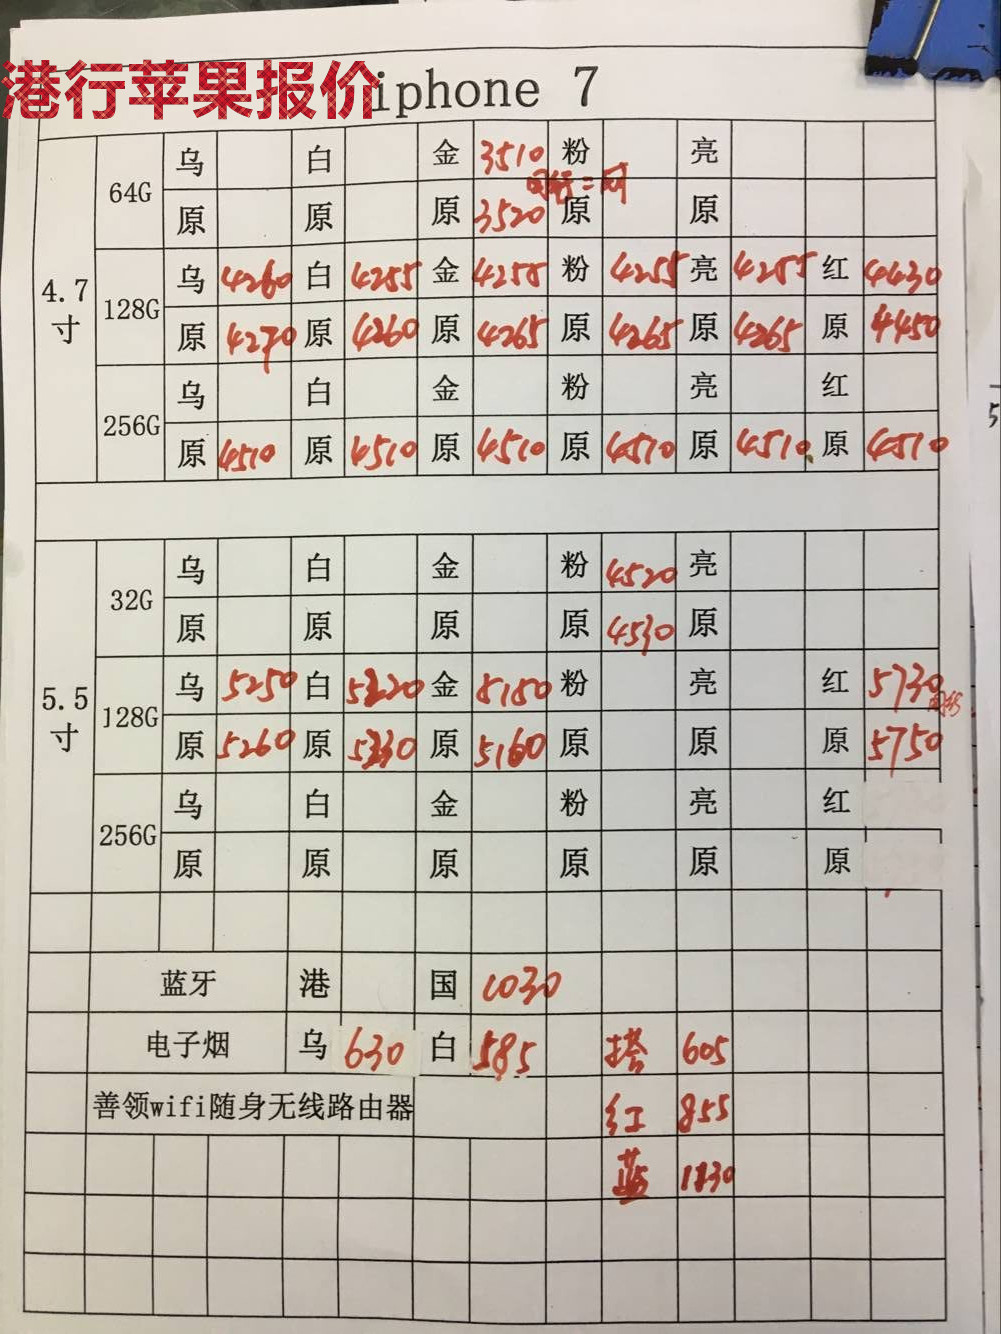 港行苹果报价
iphone 7
4.7寸
64G
乌 白 金 3510 粉 亮
原 原 原 3520 原 原
128G
乌 4260 白 4255 金 4255 粉 4255 亮 4255 红 4430
原 4270 原 4260 原 4265 原 4265 原 4265 原 4450
256G
乌 白 金 粉 亮 红
原 4510 原 4510 原 4510 原 4510 原 4510 原 4510
5.5寸
32G
乌 白 金 粉 4520 亮
原 原 原 原 4530 原
128G
乌 5250 白 5220 金 5150 粉 亮 红 5730
原 5260 原 5230 原 5160 原 原 原 5750
256G
乌 白 金 粉 亮 红
原 原 原 原 原 原
蓝牙 港 国 1030
电子烟 乌 630 白 585 塔 605
善领wifi随身无线路由器 红 855
蓝 1830